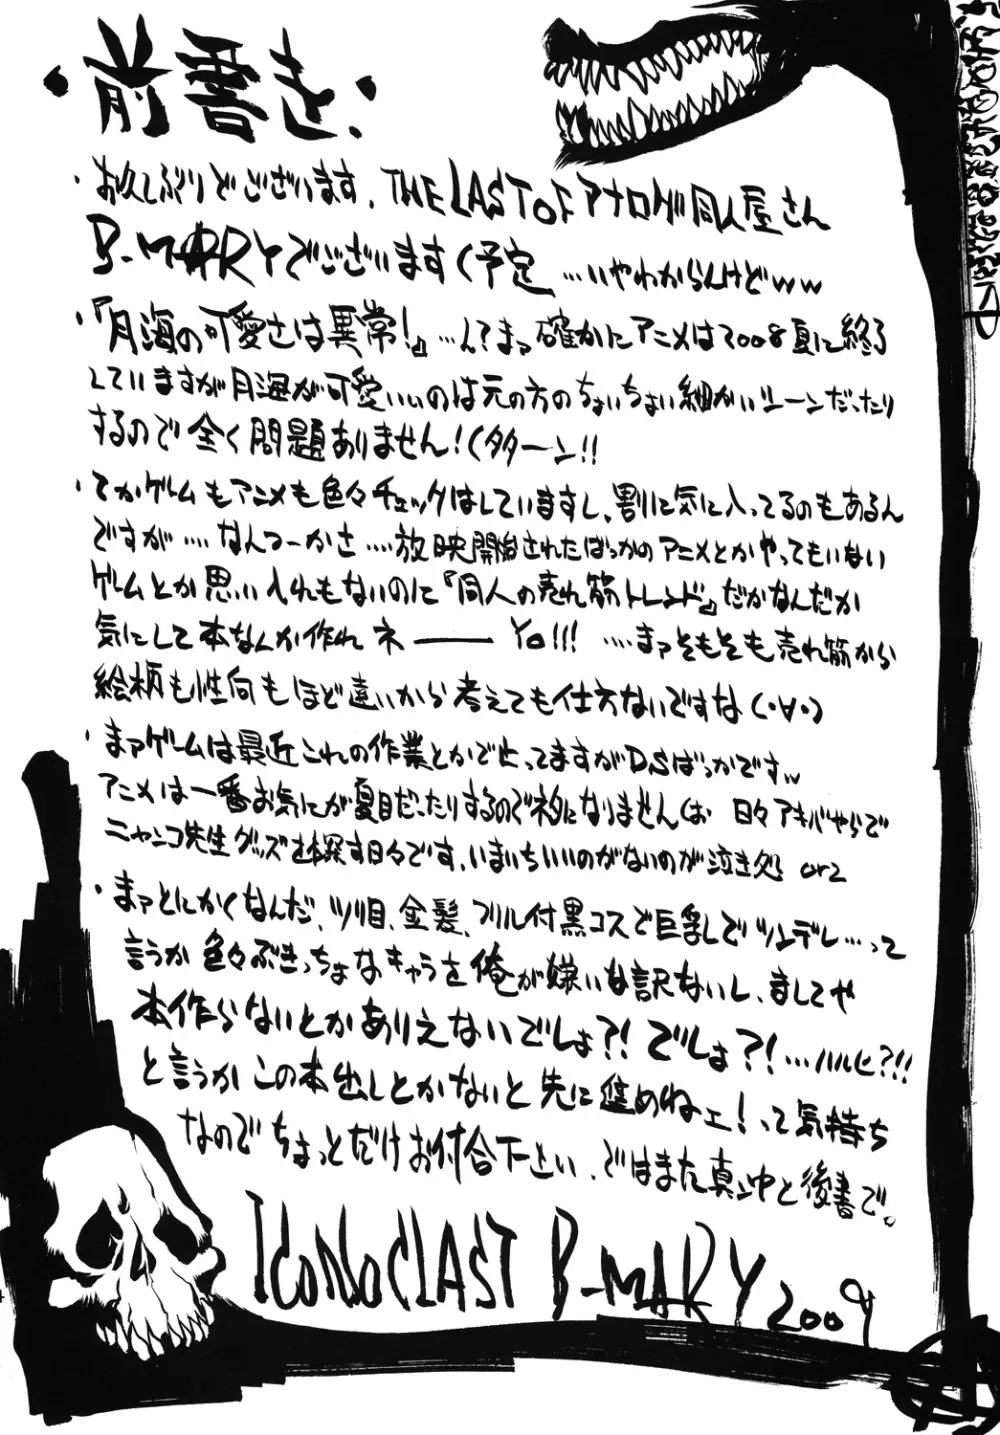 ・前書き・
・お久しぶりでございます、THE LAST OF アナログ同人屋さん
B-MARYでございます(予定 …いやわからんけどww
・『月海の可愛さは異常!』…ん?まァ確かにアニメは2008夏に終了
していますが月海が可愛いぃのは元の方のちょいちょい細かいシーンだったり
するので全く問題ありません!(タターン!!
・てかゲームもアニメも色々チェックはしていますし、割に気に入ってるのもあるん
ですが‥‥なんつーかさ‥‥放映開始されたばっかのアニメとかやってもいない
ゲームとか思い入れもないのに『同人の売れ筋トレンド』だかなんだか
気にして本なんか作れネ――Yo!!! ‥‥まァそもそも売れ筋から
絵柄も性向もほど遠いから考えても仕方ないですな(・∀・)
・まァゲームは最近これの作業とかで止ってますがDSばっかですw
アニメは一番お気にが夏目だったりするのでネタになりませんしお 日々アキバやらで
ニャンコ先生グッズを探す日々です、いまいちいいのがないのが泣き処 orz
・まァとにかくなんだ、ツリ目、金髪、フリル付黒コスで巨乳でツンデレ…って
言うか色々ぶきっちょなキャラを俺が嫌いな訳ないし、ましてや
本作らないとかありえないでしょ?!でしょ?!…ハルヒ?!!
と言うかこの本出しとかないと先に進めねェ!って気持ち
なのでちょっとだけお付合下さい、ではまた真ン中と後書で。
IconoCLAST B-MARY 2009